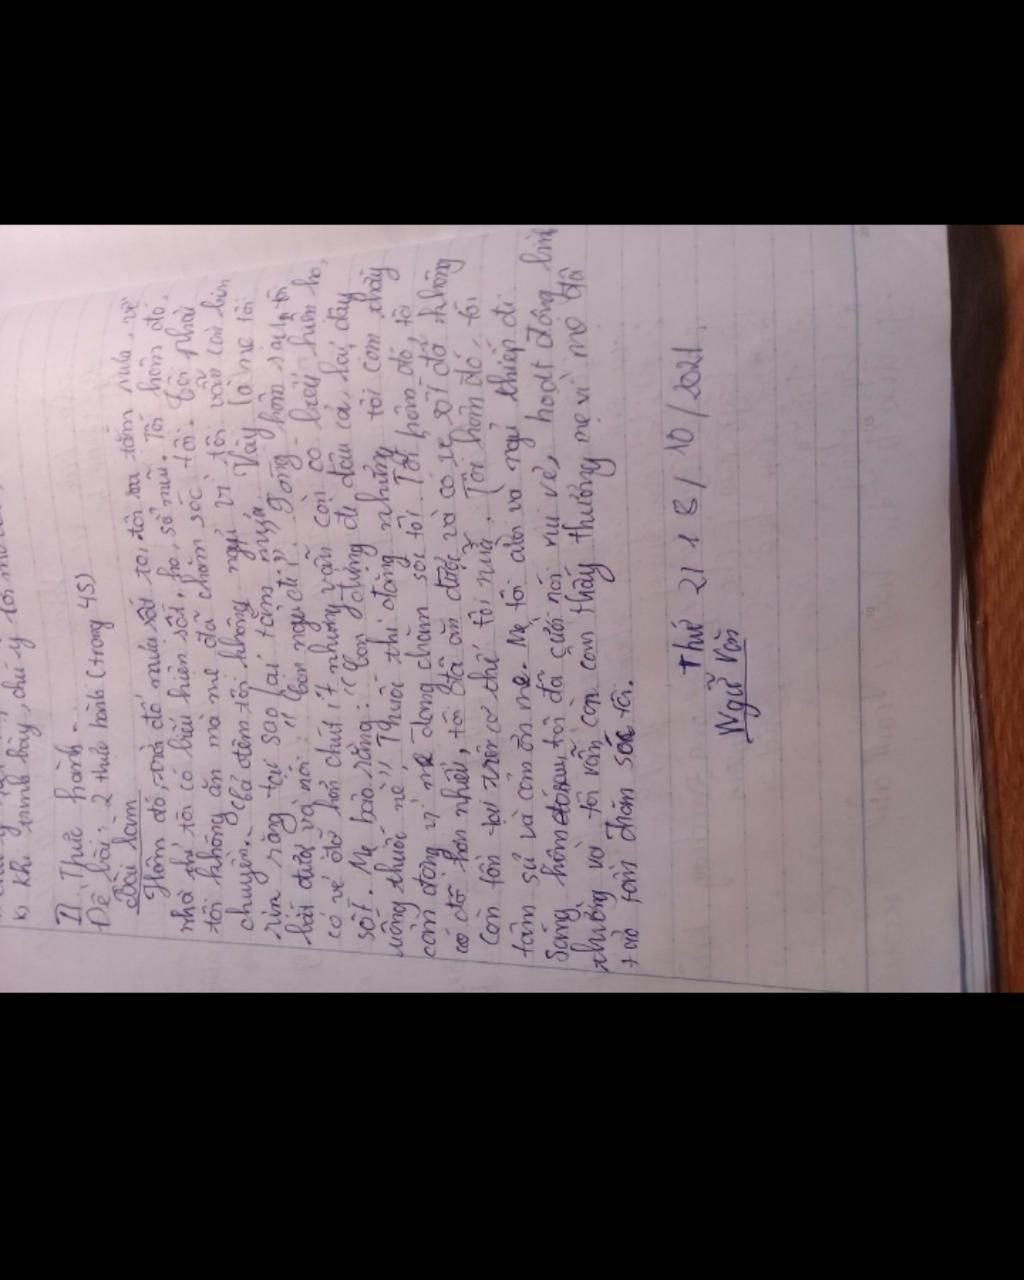 khi trình bày, chú ý lời
II, Thực hành.
Đề bài: 2 thực hành (trong 45)
Bài làm
Hôm đó, trời đổ mưa rất to, tôi ra tắm mưa, về
nhà thì tôi có biểu hiện sốt, ho, sổ mũi. Tối hôm đó,
tôi không ăn mà mẹ đã chăm sóc tôi. Tôi phải
chuyện: "cả đêm tôi không ngủ vì tôi vẫn còn
rằng tại sao lại tắm mưa. Vậy là mẹ tôi
bắt được và nói: "con ngủ đi". Sáng hôm sau, tôi
có vẻ đỡ hơn chút ít nhưng vẫn còn có biểu hiện ho,
sốt. Mẹ bảo rằng: "Con đừng đi đâu cả, lại đây
uống thuốc nè". Thuốc thì đắng nhưng tôi cảm thấy
cảm động vì mẹ đang chăm sóc tôi. Tối hôm đó tôi
có đỡ hơn nhiều, tôi đã ăn được và có vẻ sốt đã không
còn tồn tại trên cơ thể tôi nữa. Tối hôm đó, tôi
tâm sự và cảm ơn mẹ. Mẹ tôi ôm và ngủ thiếp đi
Sáng hôm sau, tôi đã cười nói vui vẻ, hoạt động bình
thường và tôi vẫn còn cảm thấy thương mẹ vì mẹ đã
chăm sóc tôi.
Thứ 2118/10/2021
Ngữ Văn